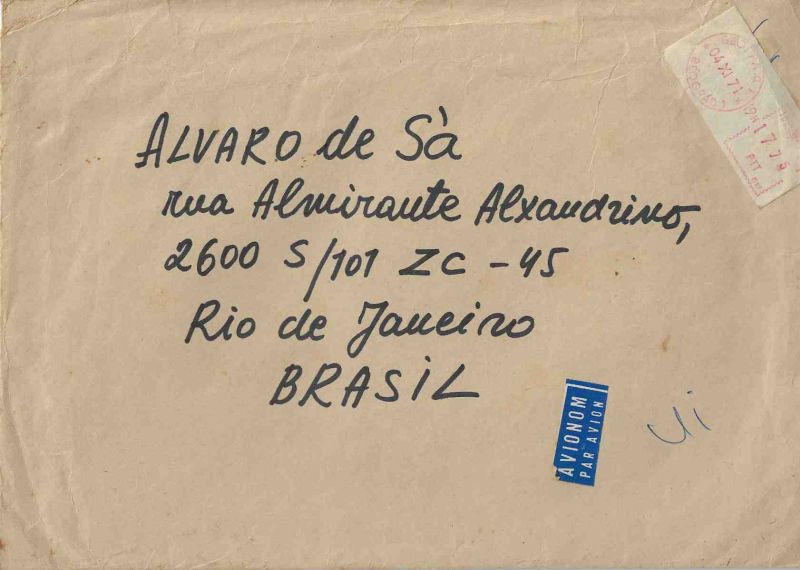 ALVARO de Sà
rua Almirante Alxandrino,
2600 S/101 ZC - 45
Rio de Janeiro
BRASIL
AVIONOM
PAR AVION
04 XI 71
PTT